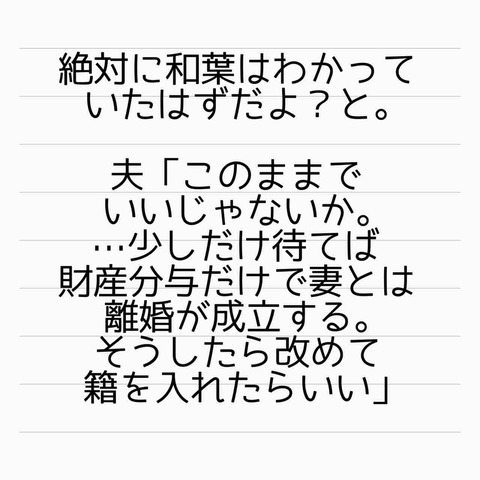 絶対に和葉はわかって
いたはずだよ？と。
夫「このままで
いいじゃないか。
…少しだけ待てば
財産分与だけで妻とは
離婚が成立する。
そうしたら改めて
籍を入れたらいい」